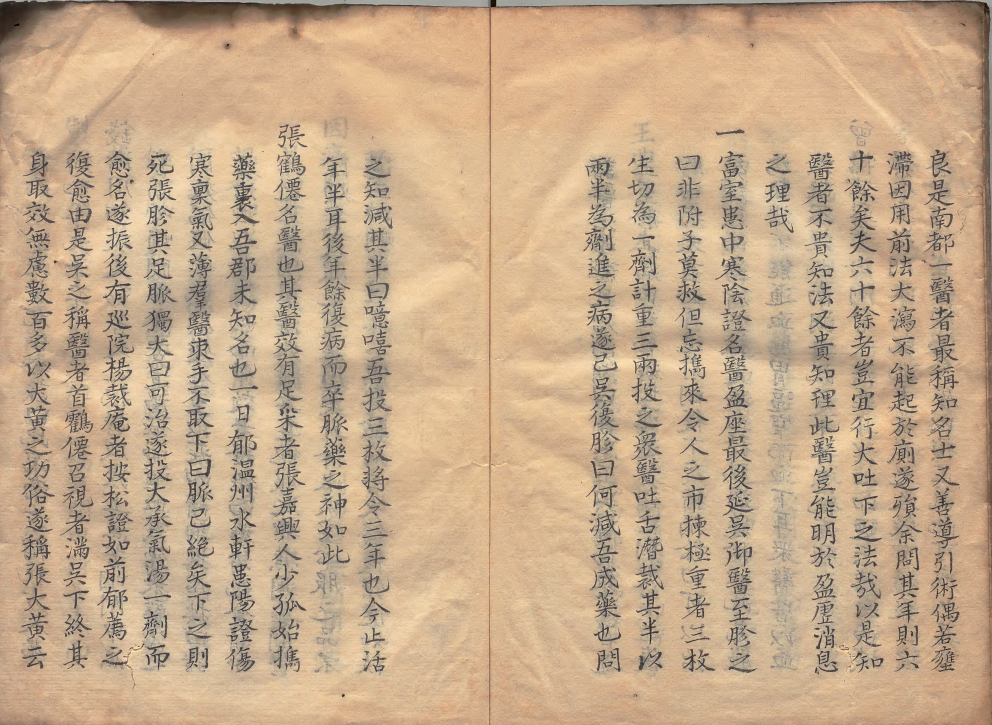 良是南都一醫者最稱知名士又善導引術偶若壅
滯因用前法大瀉不能起於廁遂殞余問其年則六
十餘矣夫六十餘者豈宜行大吐下之法哉以是知
醫者不貴知法又貴知理此醫豈能明於盈虛消息
之理哉
一富室患中寒陰證名醫盈座最後延吳御醫至胗之
曰非附子莫救但忘攜來令人之市揀極重者三枚
生切為一劑計重三兩投之衆醫吐舌潛裁其半以
兩半為劑進之病遂已吳復胗曰何減吾成藥也問
之知減其半曰噫嘻吾投三枚將令三年也今止活
年半耳後年餘復病而卒脈藥之神如此
張鶴僊名醫也其醫效有足采者張嘉興人少孤始攜
藥裹入吾郡未知名也一日郁溫州水軒患陽證傷
寒稟氣又薄羣醫束手不取下曰脈已絕矣下之則
死張胗其足脈獨大曰可治遂投大承氣湯一劑而
愈名遂振後有巡院楊裁庵者按松證如前郁薦之
復愈由是吳之稱醫者首鶴僊召視者滿吳下終其
身取效無慮數百多以大黄之功俗遂稱張大黄云